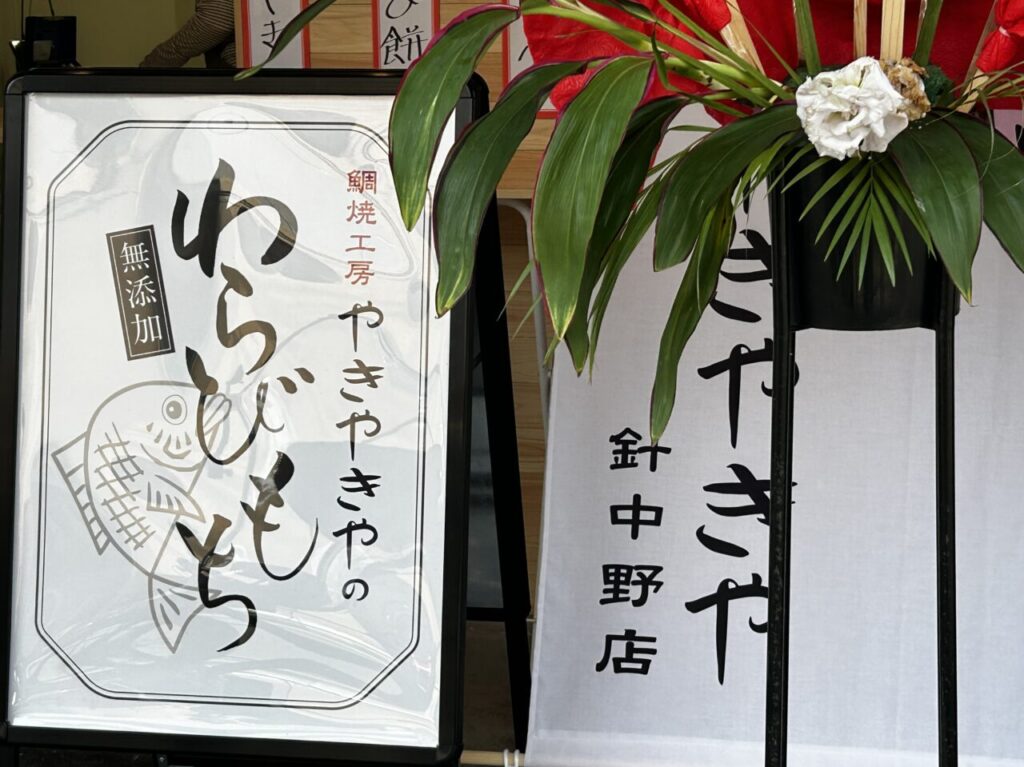 び餅
鯛焼工房 やきやきやの
わらびもち
無添加
きやきや
針中野店